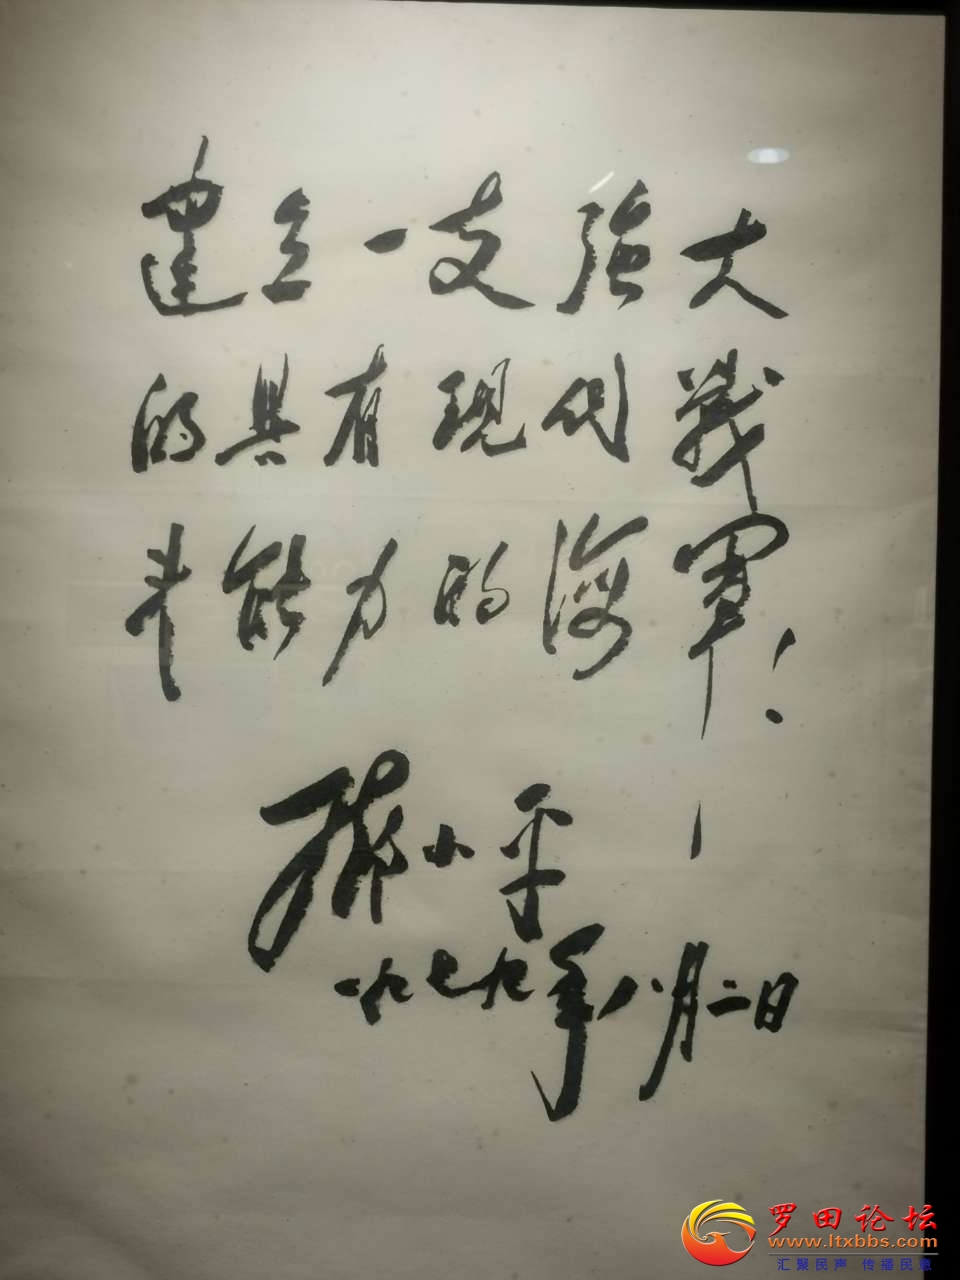 建立一支强大
的具有现代战
斗能力的海军!
邓小平
一九七九年八月二日
罗田论坛
www.ltxbbs.com
汇聚民声 传播民意